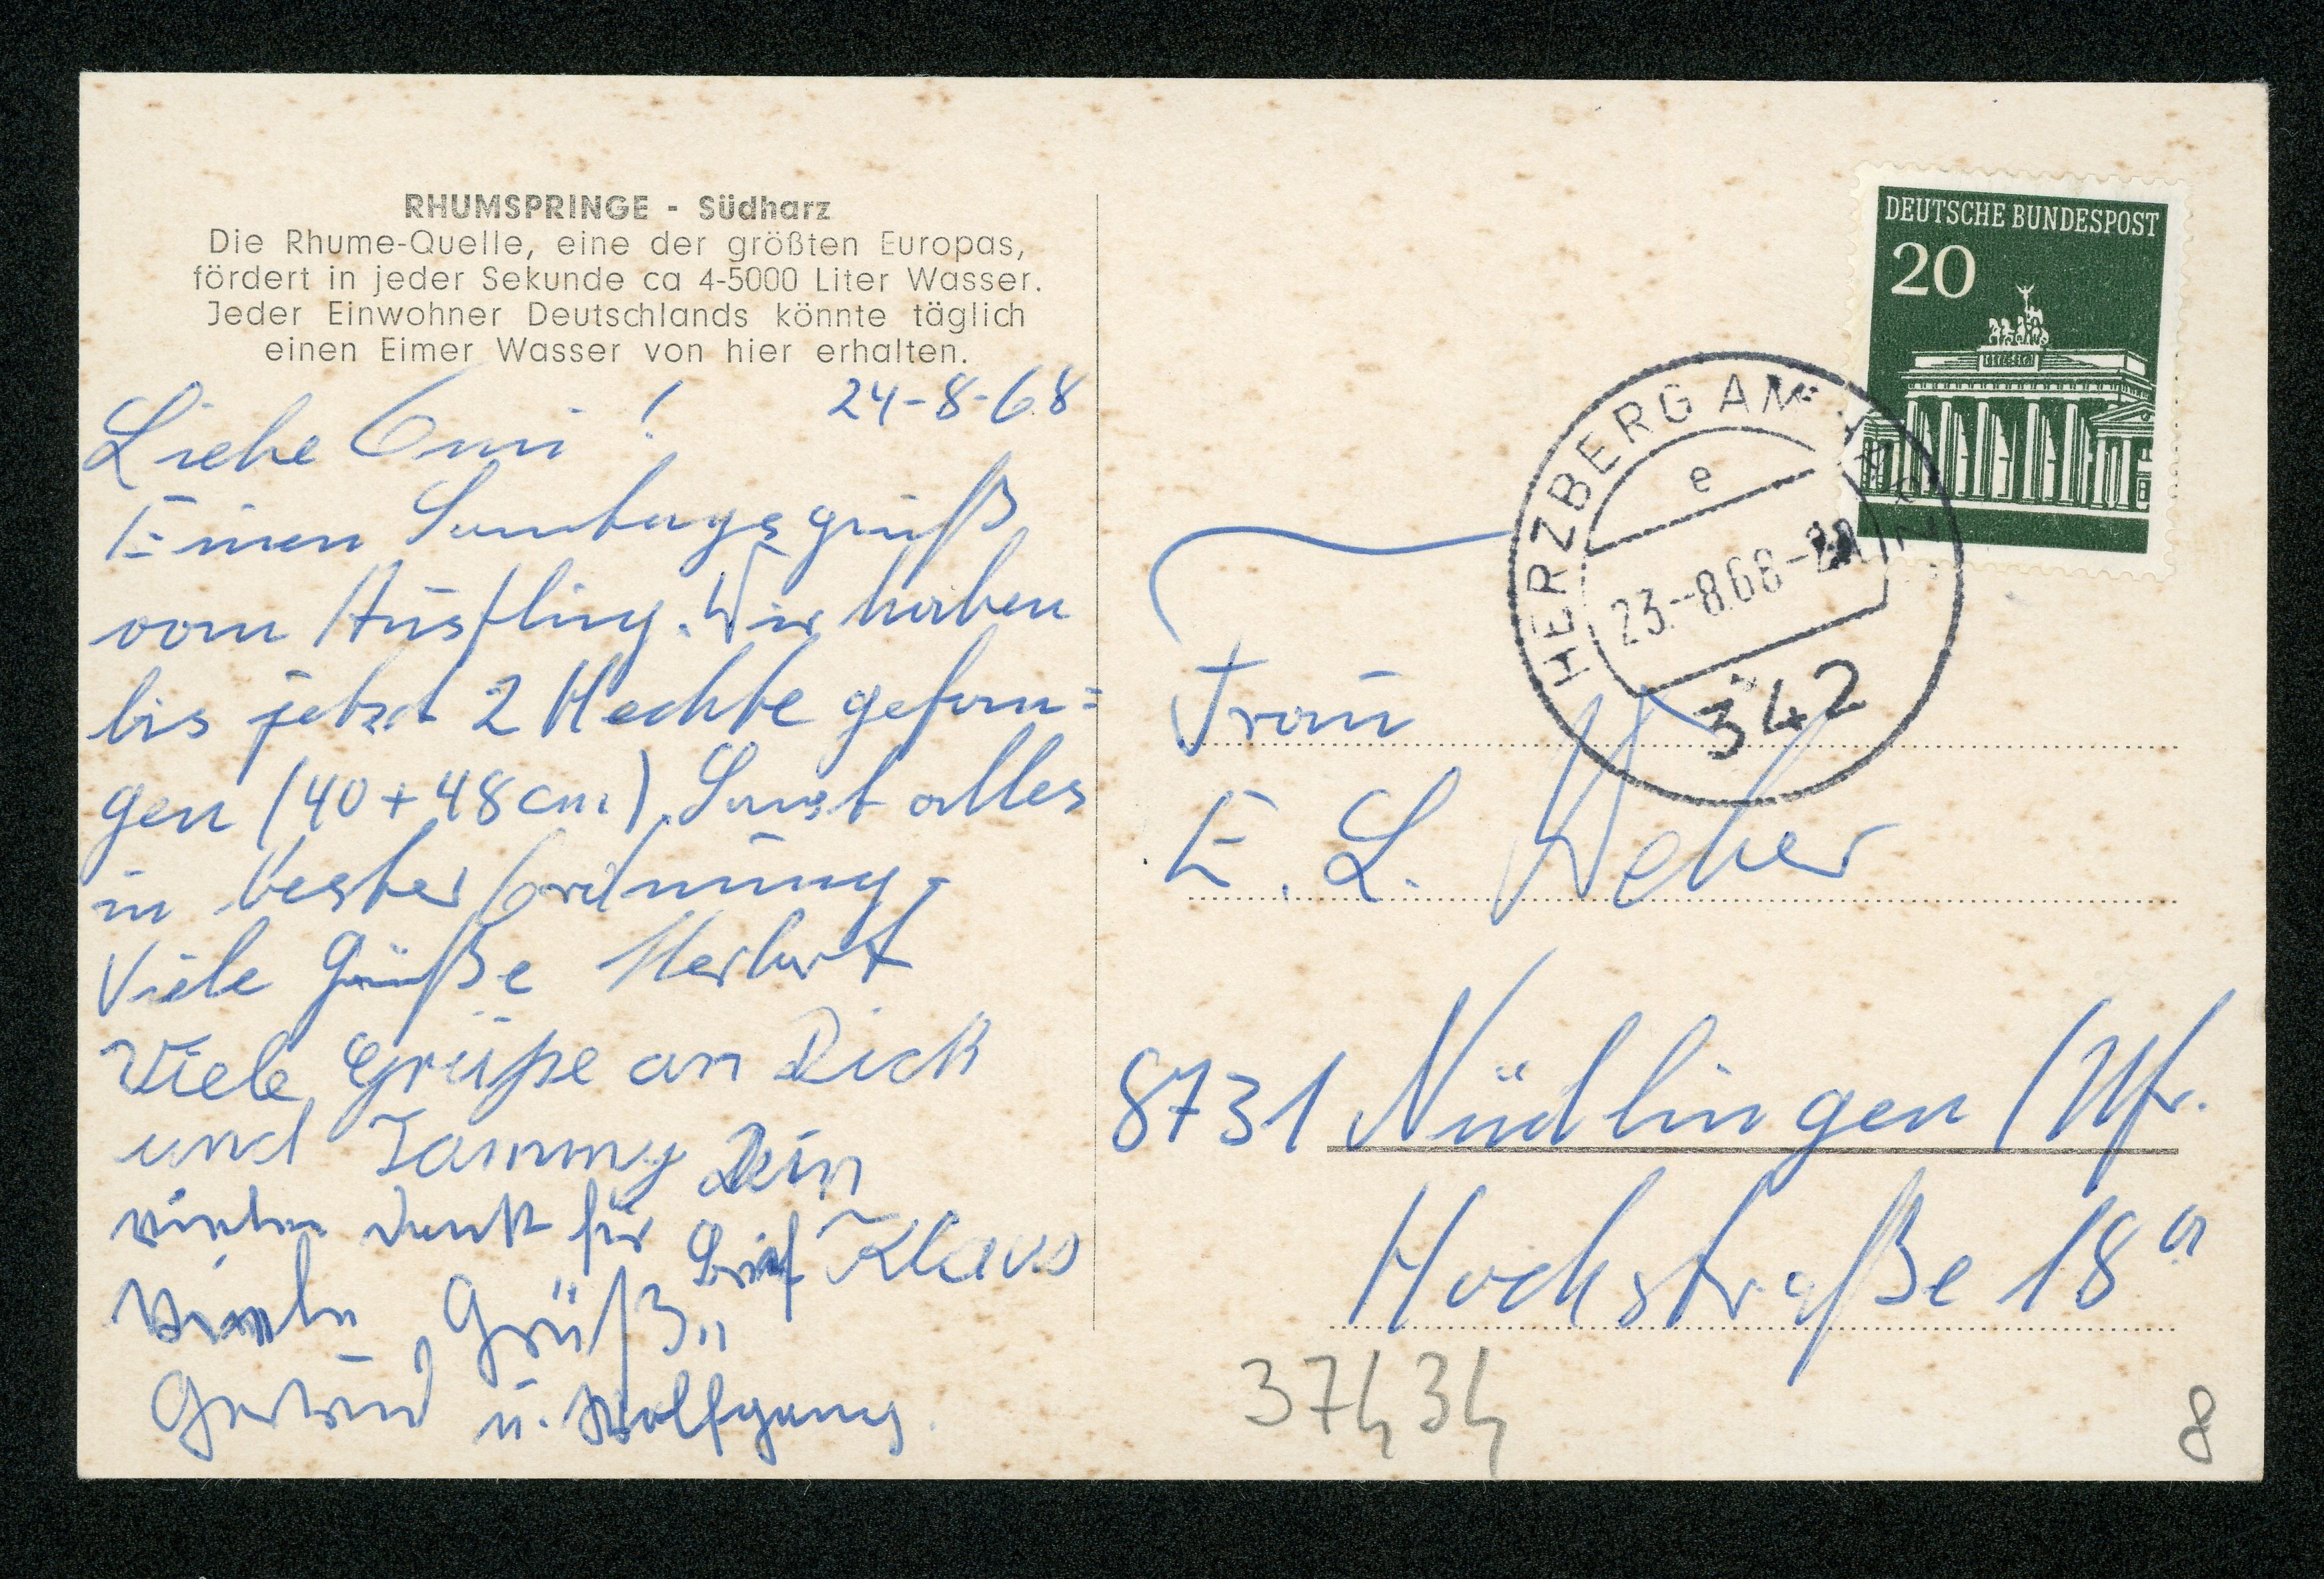 RHUMSPRINGE - Südharz
Die Rhume-Quelle, eine der größten Europas,
fördert in jeder Sekunde ca 4-5000 Liter Wasser.
Jeder Einwohner Deutschlands könnte täglich
einen Eimer Wasser von hier erhalten.
24-8-68
Liebe Omi!
Einen Sonntagsgruß
vom Ausflug. Wir haben
bis jetzt 2 Hechte gefan=
gen (40+48cm). Sonst alles
in bester Ordnung.
Viele Grüße Herbert
Viele Grüße an Dick
und Tammy Dein
Klaus
vielen Dank für Brief
Viele Grüße
u. Wolfgang.
DEUTSCHE BUNDESPOST
20
HERZBERG AM HARZ
e
23.-8.68-20
342
Frau
E. L. Weber
8731 Nüdlingen/Ufr.
Hochstraße 18a
37434
8